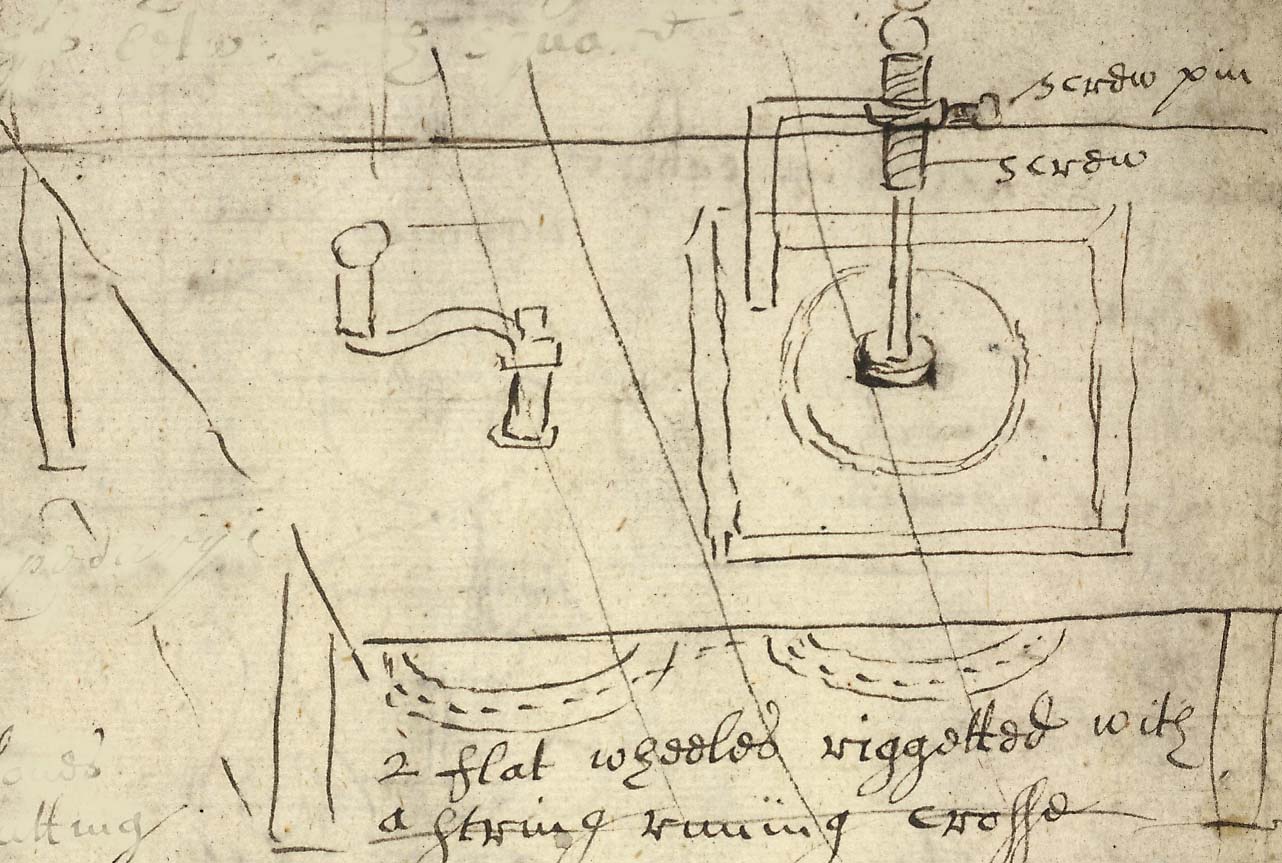 screw pin
screw
2 flat wheeles riggetted with
a string running crosse